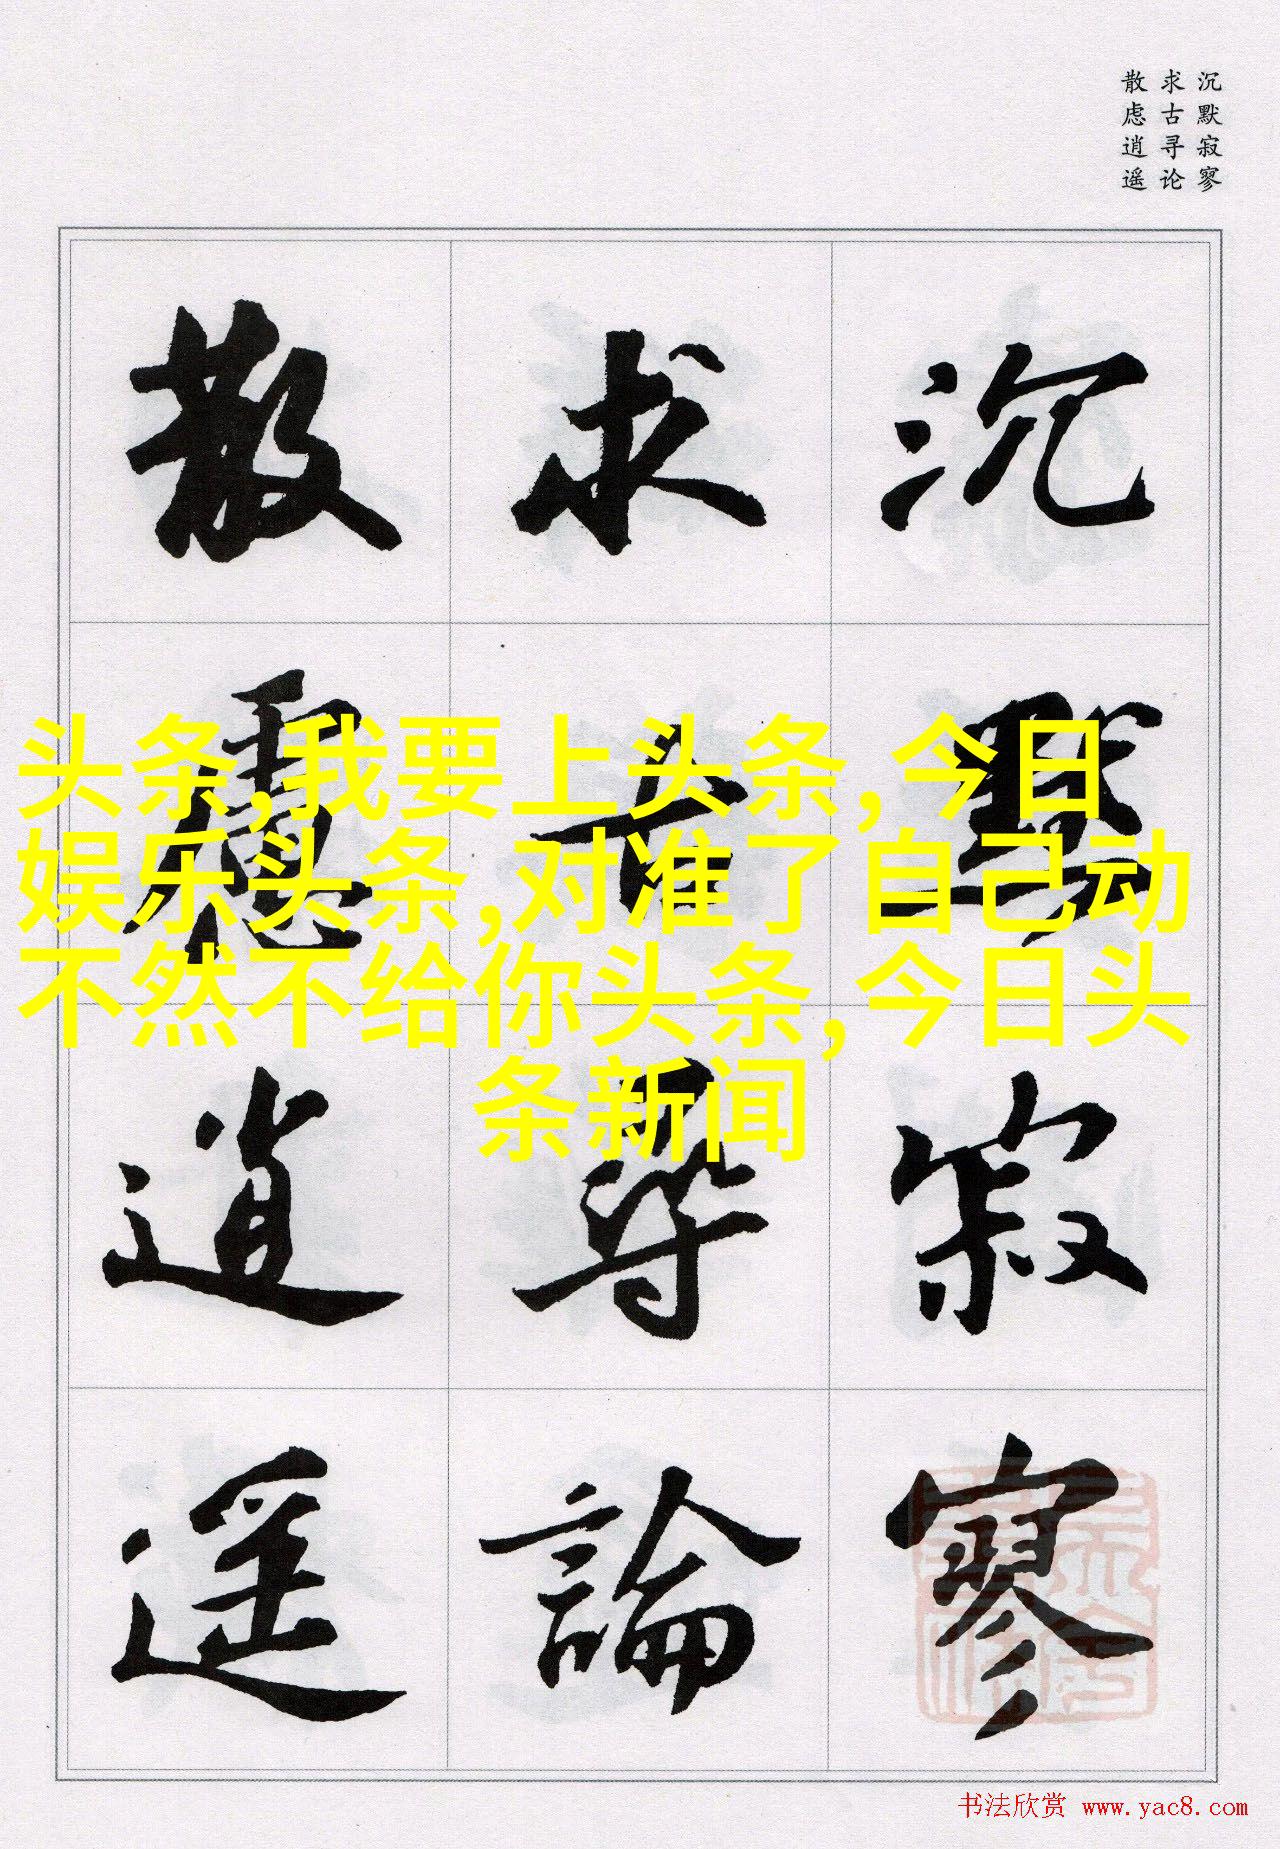 沉默寂寥
求古寻论
散虑逍遥
沉默寂寥
求古尋論
散慮逍遥
头条,我要上头条,今日
娱乐头条,对准了自己动
不然不给你头条,今日头
条新闻
书法欣赏 www.yac8.com